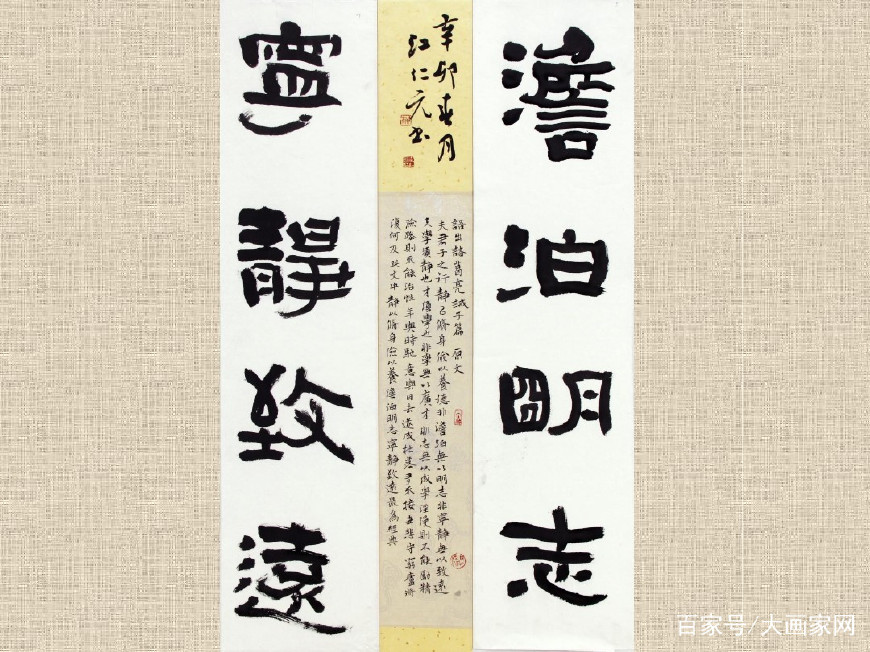 澹泊明志
寧靜致遠
辛卯春月
江仁元書
語出諸葛亮誡子篇 原文
夫君子之行靜以脩身儉以養德非澹泊無以明志非寧靜無以致遠
夫學須靜也才須學也非學無以廣才非志無以成學淫漫則不能勵精
險躁則不能治性年與時馳意與日去遂成枯落多不接世悲守窮廬將
復何及此文中靜以脩身儉以養澹泊明志寧靜致遠最為經典
百家号/大画家网